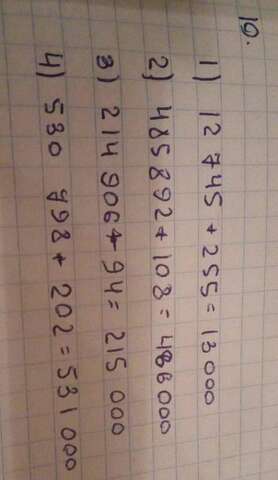 19.
1) 12 745 + 255 = 13 000
2) 485 892 + 108 = 486 000
3) 214 906 + 94 = 215 000
4) 530 798 + 202 = 531 000